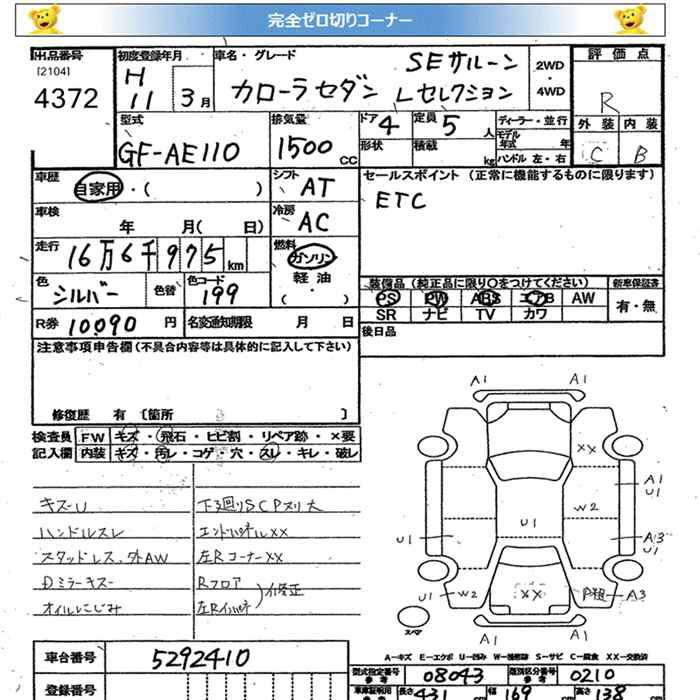 完全ゼロ切りコーナー
出品番号
[2104]
4372
初度登録年月
H 11 3月
車名・グレード
カローラセダン SEサルーン Lセレクション
2WD
・
4WD
評価点
R
外装 内装
C B
型式
GF-AE110
排気量
1500cc
ドア 4
定員 5人
形状
積載 kg
ディーラー・並行
モデル年式 年
ハンドル 左・右
車歴
自家用・( )
シフト
AT
セールスポイント (正常に機能するものに限ります)
ETC
車検
年 月( 日)
冷房
AC
走行
16万6千975km
燃料
ガソリン
軽油
・
( )
色
シルバー
色替
色コード
199
装備品 (純正品に限り○をつけてください)
PS PW ABS エアB AW
SR ナビ TV カワ
新車保証書
有・無
R券 10090円
名変通知期限 月 日
後日品
注意事項申告欄 (不具合内容等は具体的に記入して下さい)
修復歴 有 〔箇所 〕
検査員 FW キズ・飛石・ヒビ割・リペア跡・×要
記入欄 内装 キズ・汚レ・コゲ・穴・スレ・キレ・破レ
キズーU
ハンドルスレ
スタッドレス、外AW
Dミラーキズー
オイルにじみ
下廻りSCPスリ大
エンドパネルXX
左RコーナーXX
Rフロア
左Rインパネ
修正
A1 A1
XX
A1
U1
W2
U1
U1
A3
U1
U1
W2
XX
P粗
A3
スペア
A1 A1
A－キズ E－エクボ U－凹み W－補修跡 S－サビ C－腐食 XX－交換済
車台番号 5292410
型式指定番号
参考
08043
類別区分番号
参考
0210
登録番号
車庫証明用
参考
長さ 431
幅 169
高さ 138